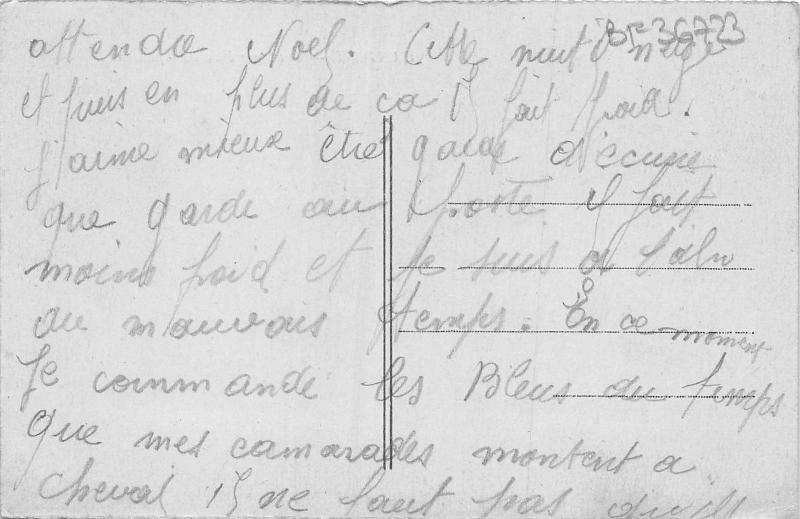 attendre Noel. Cette nuit il neige BF36723
et puis en plus de ca il fait froid.
J'aime mieux être garde d'écurie
que garde au poste il fait
moins froid et je suis a l'abri
du mauvais temps. En ce moment
Je commande les Bleus du temps
que mes camarades montent a
cheval il ne faut pas qu'ils